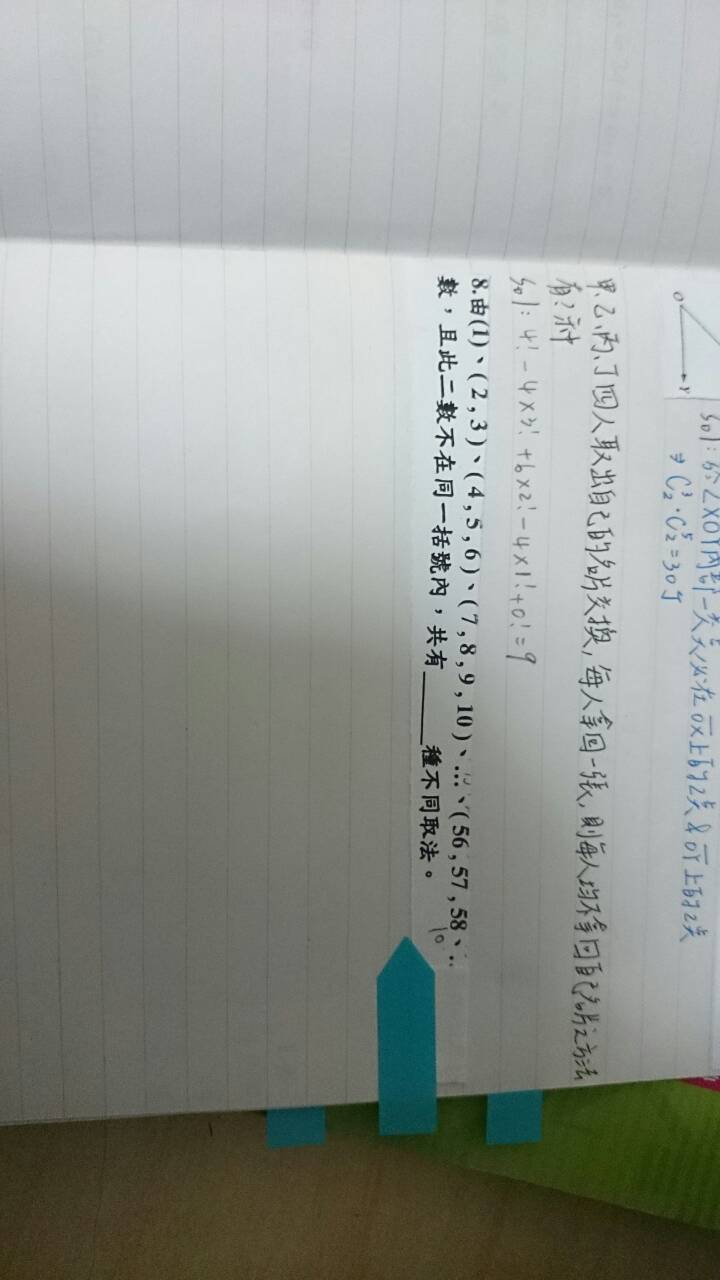 sol: 於∠XOY內部一交点必在OX上的2点&OY上的2点
⇒ C³₂·C⁵₂=30
甲、乙、丙、丁四人取出自己的名片交換,每人拿回一張,則每人均不拿回自己名片之方法
有?种
sol: 4!-4×3!+6×2!-4×1!+0!=9
8.由(1)、(2,3)、(4,5,6)、(7,8,9,10)、…、(56,57,58、‥
10
數,且此二數不在同一括號內,共有______種不同取法。